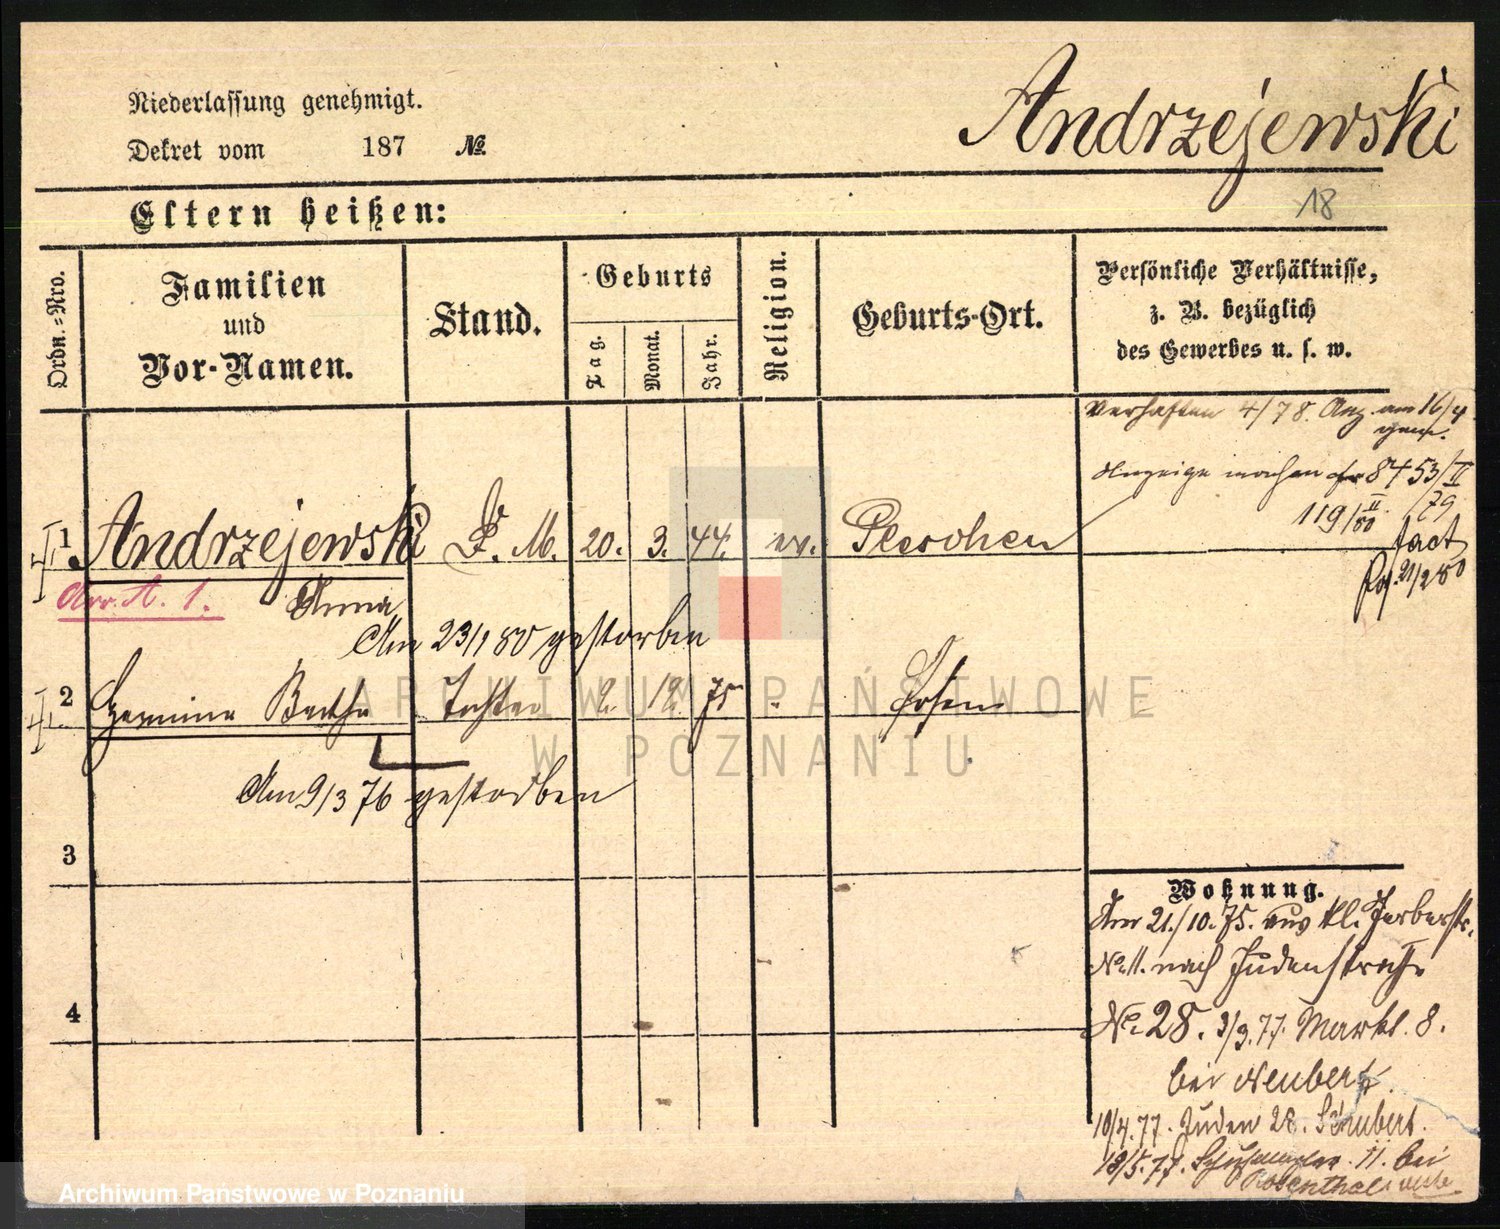 Niederlassung genehmigt.
Dekret vom 187 №
Andrzejewski
18
Eltern heißen:
Ordn.-Nro.
Familien
und
Vor-Namen.
Stand.
Geburts
Tag.
Monat.
Jahr.
Religion.
Geburts-Ort.
Persönliche Verhältnisse,
z. B. bezüglich
des Gewerbes u. s. w.
Verhaften 4/78. Anz. am 16/4
Anzeige machen 8453/II
/79
119/II
80
fact
21/2 80
1 Andrzejewski D. M. 20. 3. 44. ev. Pleschen
A. 1.
Anna
Am 23/1 80 gestorben
2 Hermine Bertha Tochter 2. 12. 75 Posen
Am 9/3 76 gestorben
3
4
Wohnung.
Am 21./10.75. aus kl. Gerberstr.
No 11. nach Judenstraße
No 28. 3/3.77. Markt. 8.
bei Neubert.
10/4.77. Juden 28. Schubert.
18/5.77. 11. bei
Rosenthal
ARCHIWUM PAŃSTWOWE
W POZNANIU
Archiwum Państwowe w Poznaniu